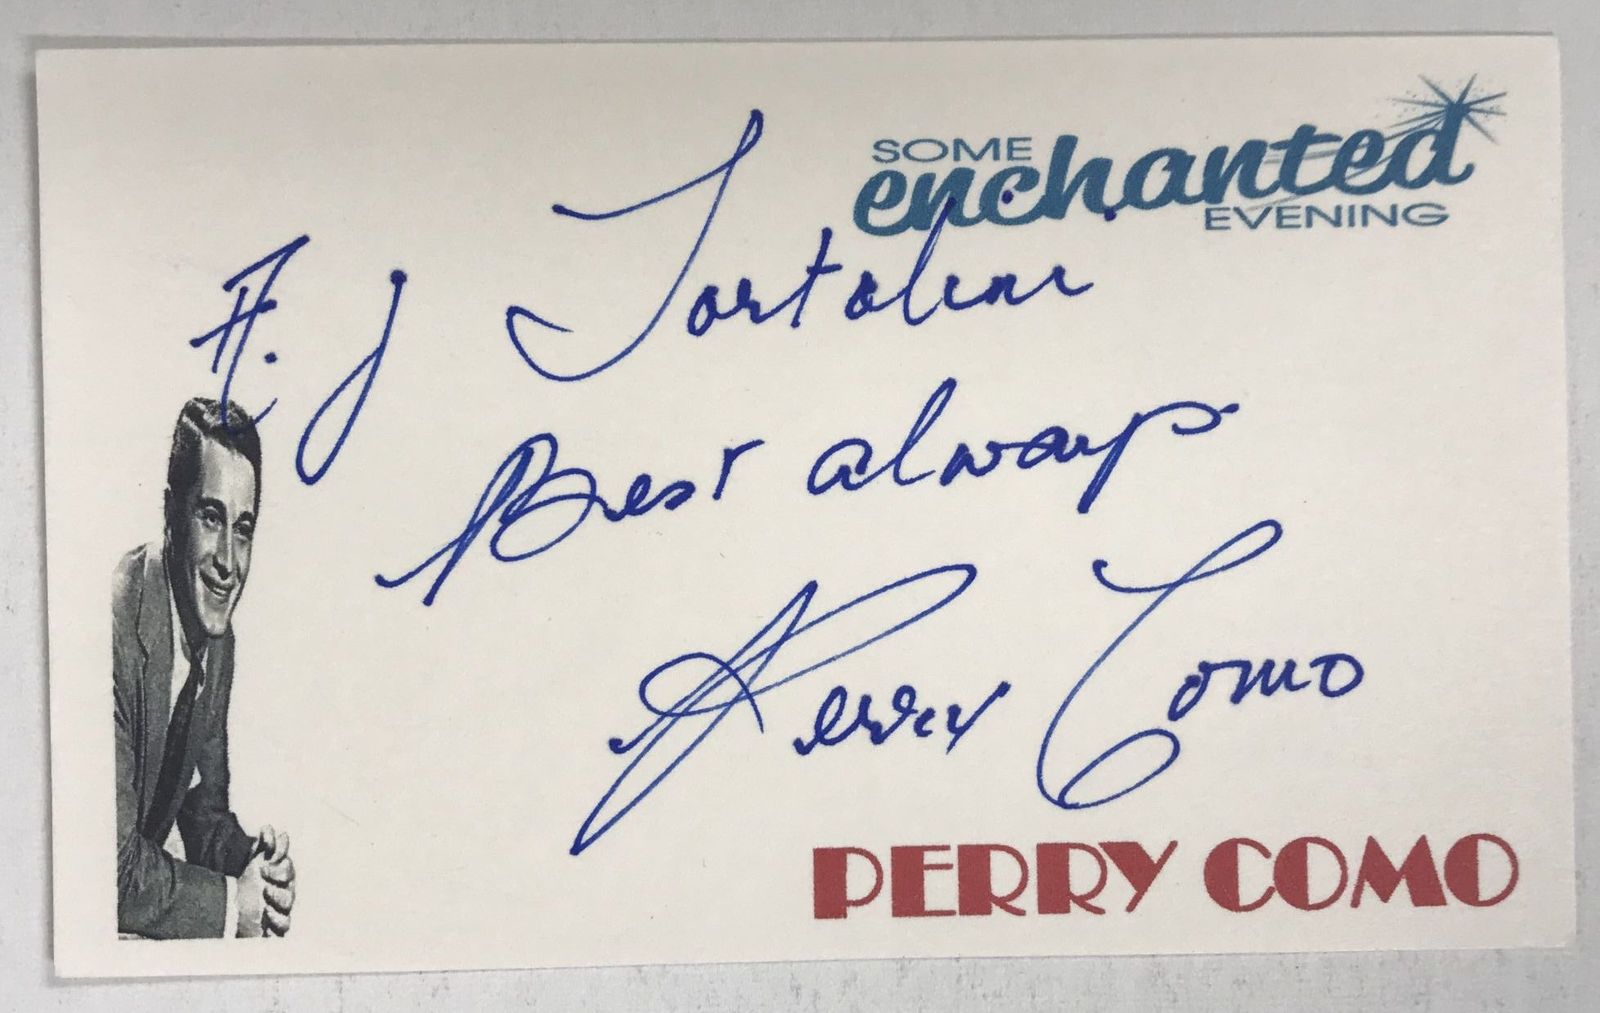 SOME
enchanted
EVENING
A. J Tortolini
Best always
Perry Como
PERRY COMO